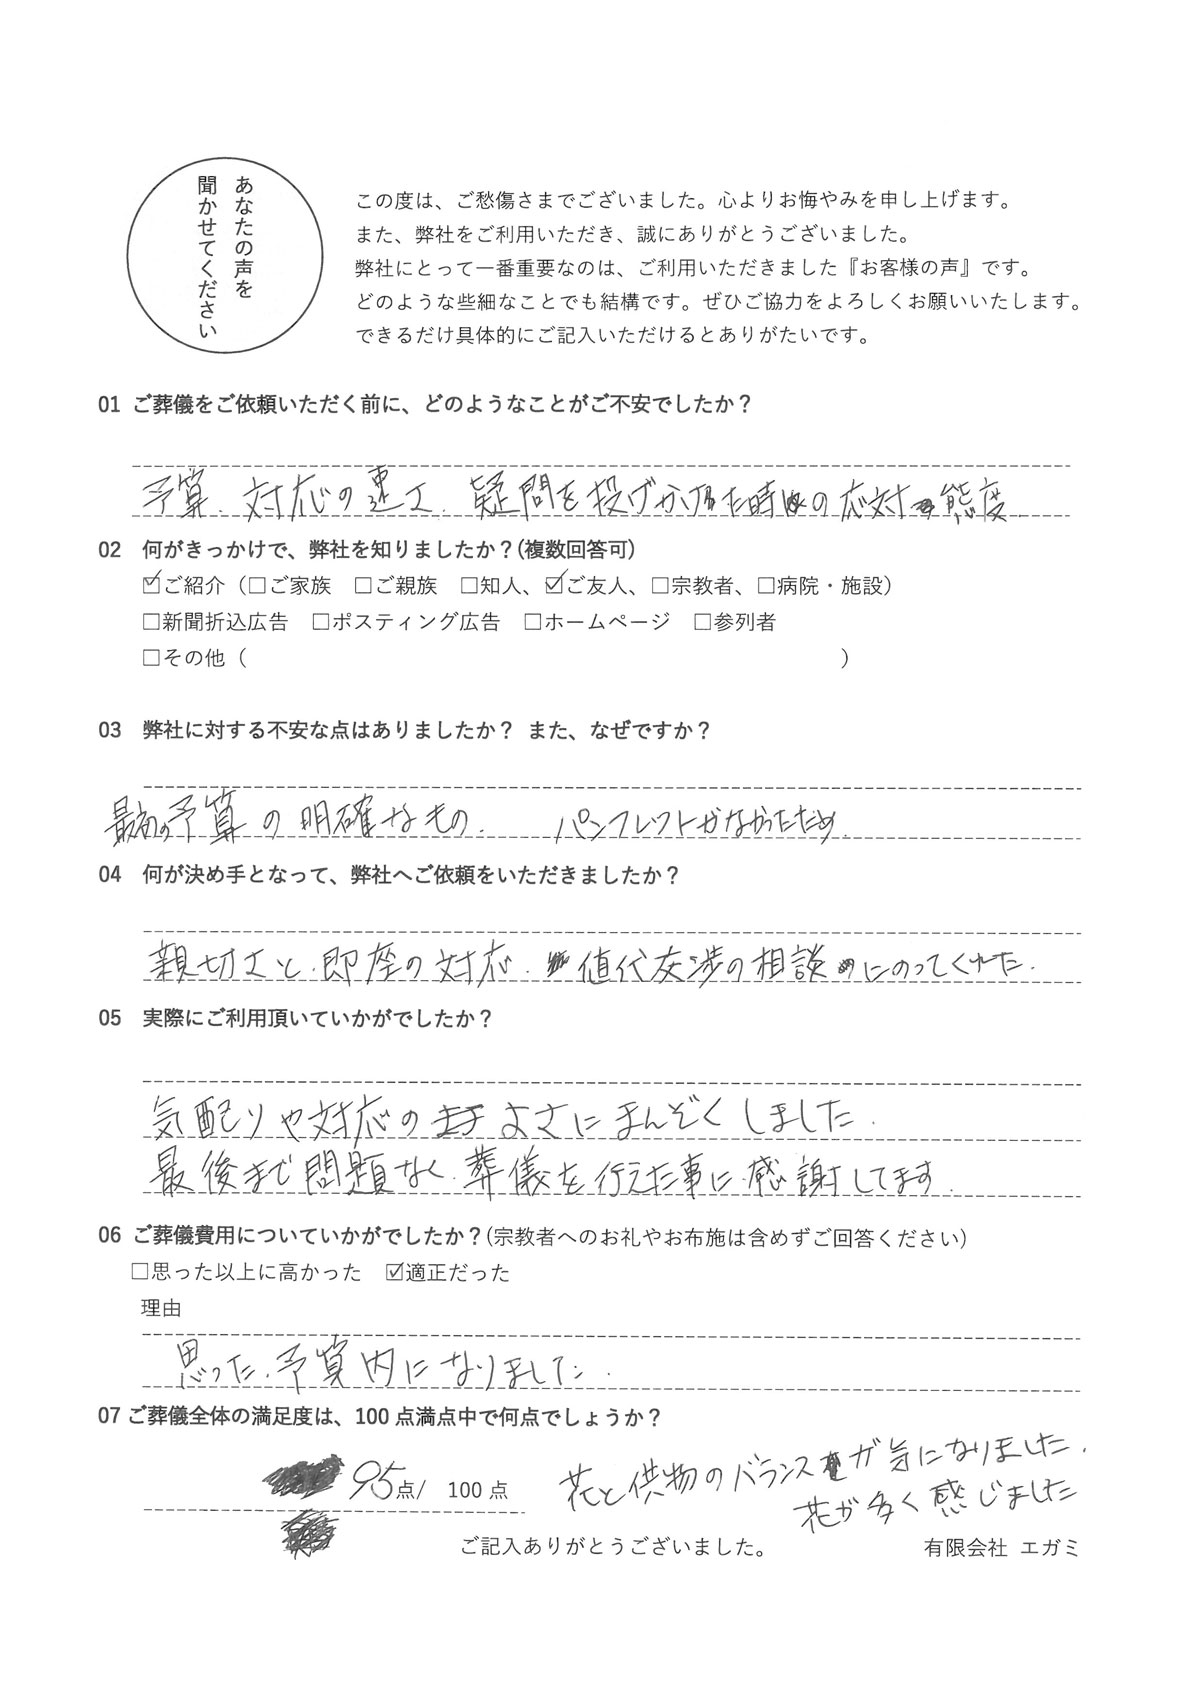 あなたの声を
聞かせてください
この度は、ご愁傷さまでございました。心よりお悔やみを申し上げます。
また、弊社をご利用いただき、誠にありがとうございました。
弊社にとって一番重要なのは、ご利用いただきました『お客様の声』です。
どのような些細なことでも結構です。ぜひご協力をよろしくお願いいたします。
できるだけ具体的にご記入いただけるとありがたいです。
01 ご葬儀をご依頼いただく前に、どのようなことがご不安でしたか？
予算、対応の速さ、疑問を投げかけた時の応対態度
02 何がきっかけで、弊社を知りましたか？(複数回答可)
☑ご紹介（□ご家族 □ご親族 □知人、☑ご友人、□宗教者、□病院・施設）
□新聞折込広告 □ポスティング広告 □ホームページ □参列者
□その他（ ）
03 弊社に対する不安な点はありましたか？ また、なぜですか？
最初の予算の明確なもの。 パンフレットがなかったため。
04 何が決め手となって、弊社へご依頼をいただきましたか？
親切さと、即座の対応、値代交渉の相談にのってくれた。
05 実際にご利用頂いていかがでしたか？
気配りや対応のよさにまんぞくしました。
最後まで問題なく、葬儀を行えた事に、感謝してます。
06 ご葬儀費用についていかがでしたか？(宗教者へのお礼やお布施は含めずご回答ください)
□思った以上に高かった ☑適正だった
理由
思った、予算内になりました。
07 ご葬儀全体の満足度は、100 点満点中で何点でしょうか？
95点/ 100 点
花と供物のバランスが気になりました。
花が多く感じました
ご記入ありがとうございました。 有限会社 エガミ